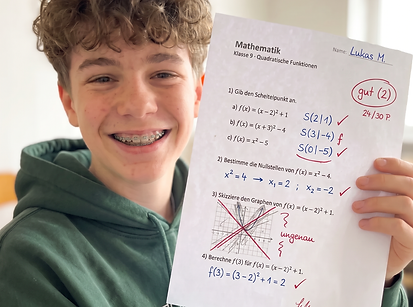 Mathematik
Name: Lukas M.
Klasse 9 - Quadratische Funktionen
gut (2)
24/30 P.
1) Gib den Scheitelpunkt an.
a) f(x) = (x − 2)² + 1 S(2|1) ✓
b) f(x) = (x + 3)² − 4 S(3|−4) f
c) f(x) = x² − 5 S(0|−5) ✓
2) Bestimme die Nullstellen von f(x) = x² − 4.
x² = 4 → x₁ = 2 ; x₂ = −2 ✓
3) Skizziere den Graphen von f(x) = (x − 2)² + 1.
ungenau
4) Berechne f(3) für f(x) = (x − 2)² + 1.
f(3) = (3 − 2)² + 1 = 2 ✓